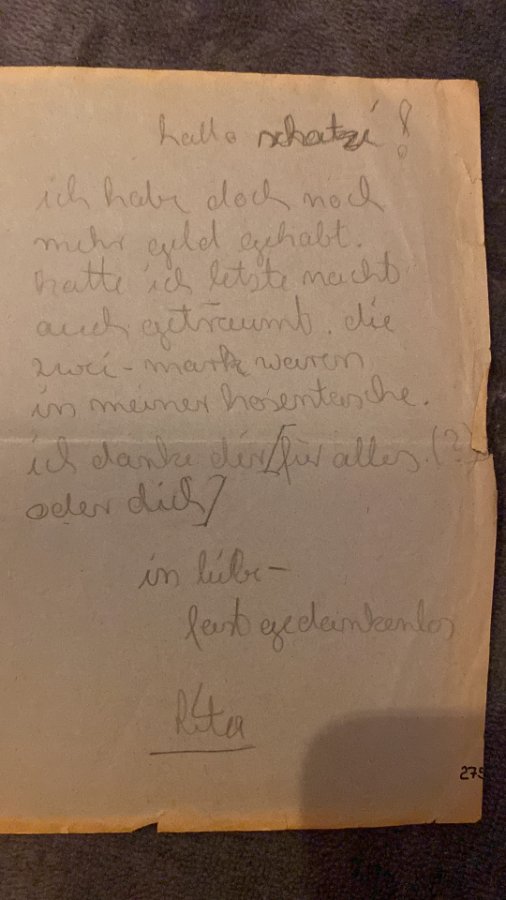 hallo schatzi!
ich habe doch noch
mehr geld gehabt.
hatte ich letzte nacht
auch geträumt. die
zwei-mark waren
in meiner hosentasche.
ich danke dir [für alles. (?)
oder dich]
in liebe -
fast gedankenlos
Rita
275